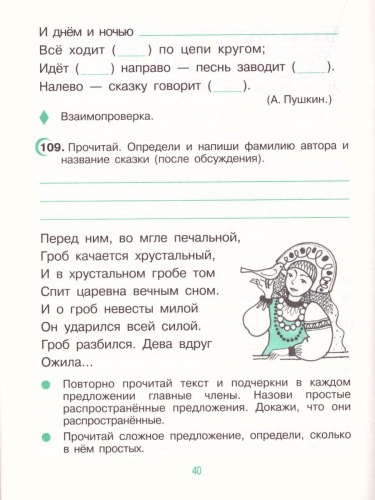 И днём и ночью
Всё ходит ( ) по цепи кругом;
Идёт ( ) направо — песнь заводит ( ).
Налево — сказку говорит ( ).
(А. Пушкин.)
Взаимопроверка.
109. Прочитай. Определи и напиши фамилию автора и
название сказки (после обсуждения).
Перед ним, во мгле печальной,
Гроб качается хрустальный,
И в хрустальном гробе том
Спит царевна вечным сном.
И о гроб невесты милой
Он ударился всей силой.
Гроб разбился. Дева вдруг
Ожила...
Повторно прочитай текст и подчеркни в каждом
предложении главные члены. Назови простые
распространённые предложения. Докажи, что они
распространённые.
Прочитай сложное предложение, определи, сколько
в нём простых.
40